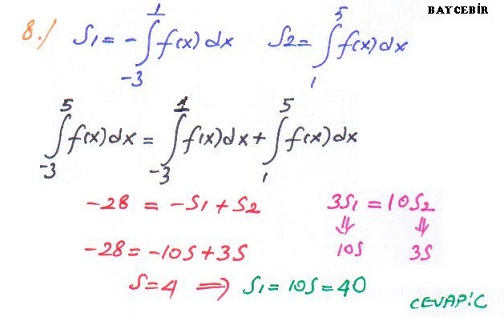 BAYCEBİR
8./ S₁ = -∫₋₃¹ f(x)dx   S₂ = ∫₁⁵ f(x)dx
∫₋₃⁵ f(x)dx = ∫₋₃¹ f(x)dx + ∫₁⁵ f(x)dx
-28 = -S₁ + S₂   3S₁ = 10S₂
⇓ ⇓
-28 = -10S + 3S   10S   3S
S = 4 ⟹ S₁ = 10S = 40
CEVAP:C